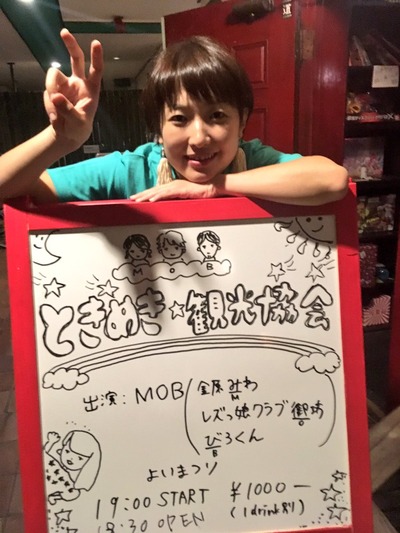 MOB
ときめき☆観光協会
出演：MOB
金原みわ
M
レズっ娘クラブ 御坊
O
びろくん
B
よいまつり
19:00 START ¥1000−
18:30 OPEN (1drink別)